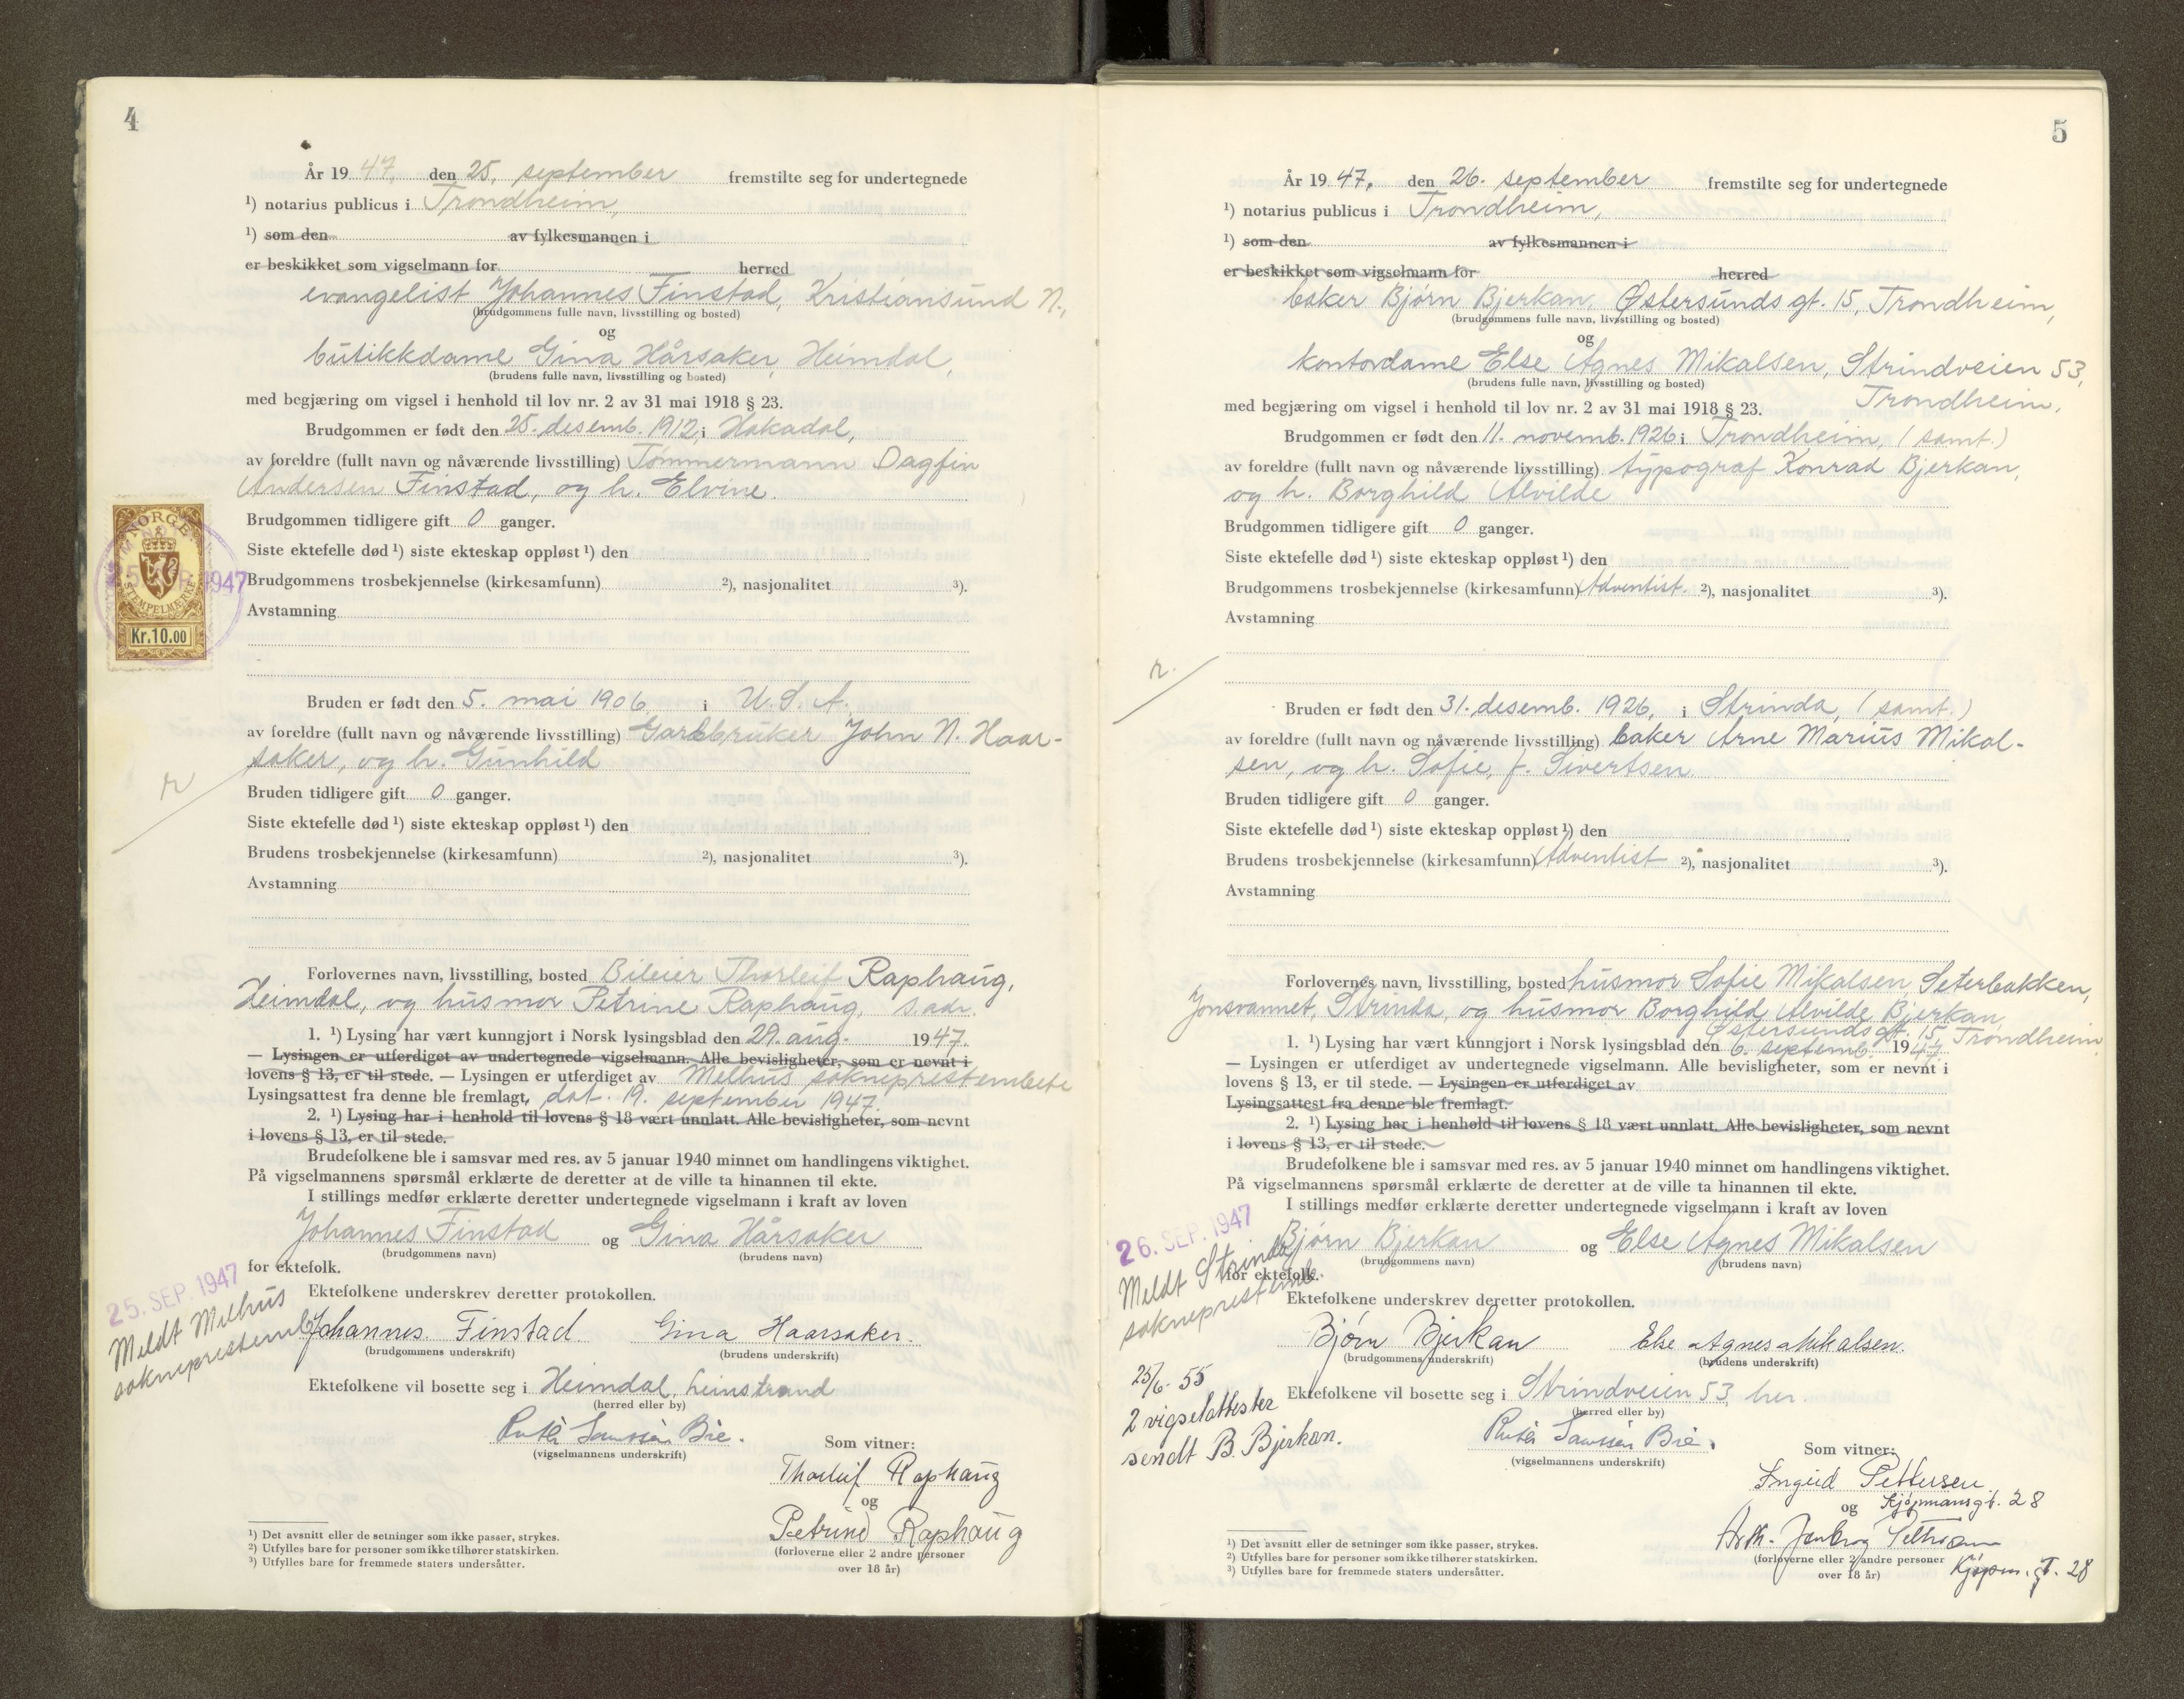 4
År 1947. den 25. september fremstilte seg for undertegnede
¹) notarius publicus i Trondheim,
¹) som den av fylkesmannen i
er beskikket som vigselmann for herred
evangelist Johannes Finstad, Kristiansund N.,
(brudgommens fulle navn, livsstilling og bosted)
og
butikkdame Gina Hårsaker, Heimdal,
(brudens fulle navn, livsstilling og bosted)
med begjæring om vigsel i henhold til lov nr. 2 av 31 mai 1918 § 23.
Brudgommen er født den 25. desemb. 1912, i Hakadal,
av foreldre (fullt navn og nåværende livsstilling) Tømmermann Dagfin
Andersen Finstad, og h. Elvine.
Brudgommen tidligere gift 0 ganger.
Siste ektefelle død ¹) siste ekteskap oppløst ¹) den
Brudgommens trosbekjennelse (kirkesamfunn) ²), nasjonalitet ³).
Avstamning
NORGE
STEMPELMERKE
Kr.10.00
25 SEP. 1947
Bruden er født den 5. mai 1906, i U.S.A.,
av foreldre (fullt navn og nåværende livsstilling) Gardbruker John N. Haar-
saker, og h. Gunhild
r
Bruden tidligere gift 0 ganger.
Siste ektefelle død ¹) siste ekteskap oppløst ¹) den
Brudens trosbekjennelse (kirkesamfunn) ²), nasjonalitet ³).
Avstamning
Forlovernes navn, livsstilling, bosted Bileier Thorleif Raphaug,
Heimdal, og husmor Petrine Raphaug, s. adr.
1. ¹) Lysing har vært kunngjort i Norsk lysingsblad den 29. aug. 1947.
— Lysingen er utferdiget av undertegnede vigselmann. Alle bevisligheter, som er nevnt i
lovens § 13, er til stede. — Lysingen er utferdiget av Melhus sokneprestembete
Lysingsattest fra denne ble fremlagt, dat. 19. september 1947.
2. ¹) Lysing har i henhold til lovens § 18 vært unnlatt. Alle bevisligheter, som nevnt
i lovens § 13, er til stede.
Brudefolkene ble i samsvar med res. av 5 januar 1940 minnet om handlingens viktighet.
På vigselmannens spørsmål erklærte de deretter at de ville ta hinannen til ekte.
I stillings medfør erklærte deretter undertegnede vigselmann i kraft av loven
Johannes Finstad og Gina Hårsaker
(brudgommens navn) (brudens navn)
for ektefolk.
25. SEP. 1947
Meldt Melhus
sokneprestemb.
Ektefolkene underskrev deretter protokollen.
Johannes Finstad Gina Haarsaker.
(brudgommens underskrift) (brudens underskrift)
Ektefolkene vil bosette seg i Heimdal, Leinstrand
(herred eller by)
Bie.
(vigselmannens underskrift)
Som vitner:
Thorleif Raphaug
og
Petrine Raphaug
(forloverne eller 2 andre personer
over 18 år)
¹) Det avsnitt eller de setninger som ikke passer, strykes.
²) Utfylles bare for personer som ikke tilhører statskirken.
³) Utfylles bare for fremmede staters undersåtter.
5
År 1947. den 26. september fremstilte seg for undertegnede
¹) notarius publicus i Trondheim,
¹) som den av fylkesmannen i
er beskikket som vigselmann for herred
baker Bjørn Bjerkan, Østersundsgt. 15, Trondheim,
(brudgommens fulle navn, livsstilling og bosted)
og
kontordame Else Agnes Mikalsen, Strindveien 53,
(brudens fulle navn, livsstilling og bosted)
Trondheim,
med begjæring om vigsel i henhold til lov nr. 2 av 31 mai 1918 § 23.
Brudgommen er født den 11. novemb. 1926 i Trondheim, (samt.)
av foreldre (fullt navn og nåværende livsstilling) typograf Konrad Bjerkan,
og h. Borghild Alvilde
Brudgommen tidligere gift 0 ganger.
Siste ektefelle død ¹) siste ekteskap oppløst ¹) den
Brudgommens trosbekjennelse (kirkesamfunn) Adventist. ²), nasjonalitet ³).
Avstamning
r.
Bruden er født den 31. desemb. 1926, i Strinda, (samt.)
av foreldre (fullt navn og nåværende livsstilling) baker Arne Marius Mikal-
sen, og h. Sofie, f. Sivertsen
Bruden tidligere gift 0 ganger.
Siste ektefelle død ¹) siste ekteskap oppløst ¹) den
Brudens trosbekjennelse (kirkesamfunn) Adventist ²), nasjonalitet ³).
Avstamning
Forlovernes navn, livsstilling, bosted husmor Sofie Mikalsen, Seterbakken,
Jonsvannet, Strinda, og husmor Borghild Alvilde Bjerkan,
Østersundsgt. 15, Trondheim
1. ¹) Lysing har vært kunngjort i Norsk lysingsblad den 6. septemb. 1947
— Lysingen er utferdiget av undertegnede vigselmann. Alle bevisligheter, som er nevnt i
lovens § 13, er til stede. — Lysingen er utferdiget av
Lysingsattest fra denne ble fremlagt.
2. ¹) Lysing har i henhold til lovens § 18 vært unnlatt. Alle bevisligheter, som nevnt
i lovens § 13, er til stede.
Brudefolkene ble i samsvar med res. av 5 januar 1940 minnet om handlingens viktighet.
På vigselmannens spørsmål erklærte de deretter at de ville ta hinannen til ekte.
I stillings medfør erklærte deretter undertegnede vigselmann i kraft av loven
Bjørn Bjerkan og Else Agnes Mikalsen
(brudgommens navn) (brudens navn)
for ektefolk.
26. SEP. 1947
Meldt Strinda
sokneprestemb.
Ektefolkene underskrev deretter protokollen.
Bjørn Bjerkan Else Agnes Mikalsen.
(brudgommens underskrift) (brudens underskrift)
25/6. 55
2 vigselattester
sendt B. Bjerkan.
Ektefolkene vil bosette seg i Strindveien 53, her.
(herred eller by)
Bie.
(vigselmannens underskrift)
Som vitner:
Ingrid Pettersen
og Kjøpmansgt. 28
Arth.
(forloverne eller 2 andre personer
over 18 år)
Kjøpm. gt. 28
¹) Det avsnitt eller de setninger som ikke passer, strykes.
²) Utfylles bare for personer som ikke tilhører statskirken.
³) Utfylles bare for fremmede staters undersåtter.